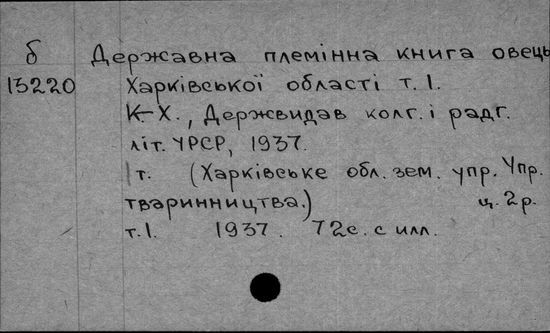 б Державна племінна книга овець
13220 Харківської області т. 1.
К-Х., Держвидав колг. і радг.
літ. УРСР, 1937.
1 т. (Харківське обл. зем. упр. Упр.
тваринництва.) ц. 2 р.
т. 1. 1937. 72 с. с илл.